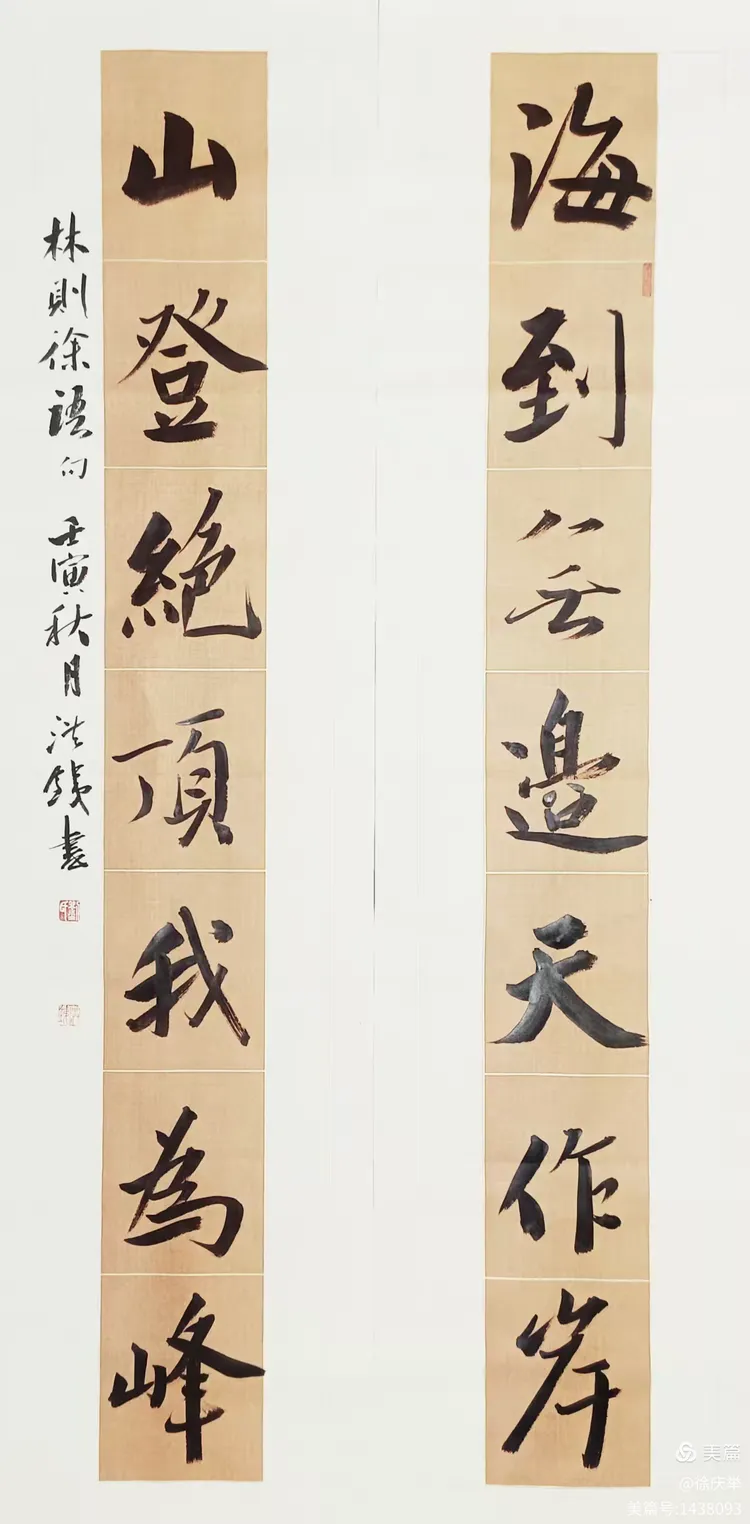 海到無邊天作岸
山登絕頂我為峰
林則徐語句 壬寅秋月 洪錢書
美篇
@徐庆华
美篇号:1438093